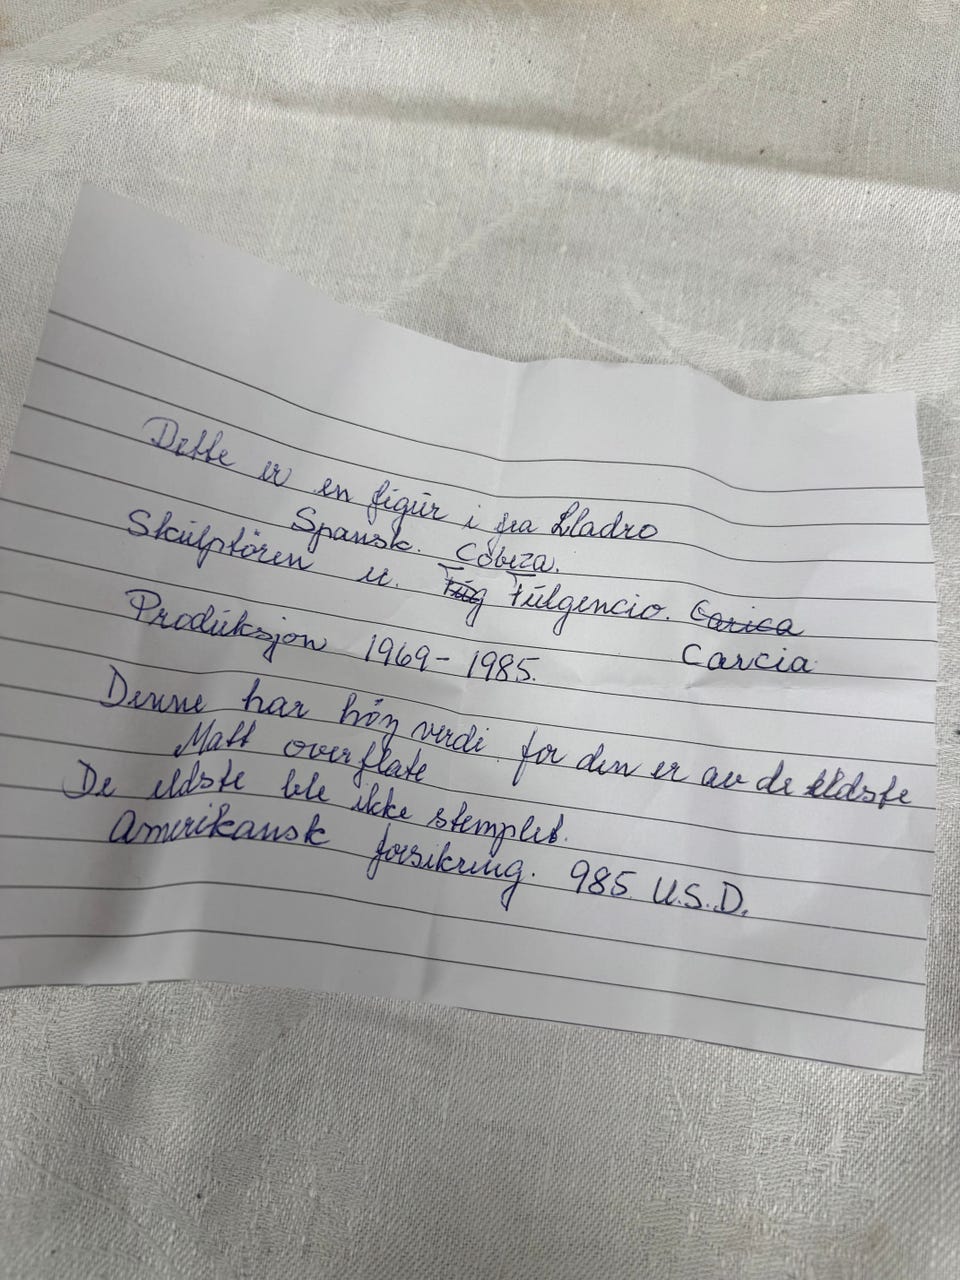 Dette er en figur i fra Lladro
Spansk. Cobeza.
Skulptören er. Fulgencio. Carica
Carcia
Produksjon 1969-1985.
Denne har höy verdi for den er av de eldste
Matt overflate
De eldste ble ikke stemplet.
Amerikansk forsikring. 985 U.S.D.